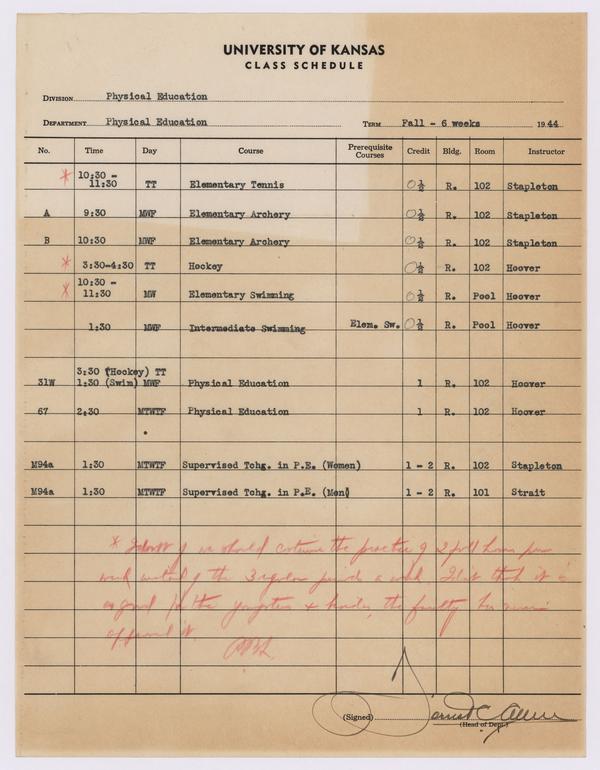 UNIVERSITY OF KANSAS
CLASS SCHEDULE
DIVISION Physical Education
DEPARTMENT Physical Education TERM Fall - 6 weeks 1944
No. Time Day Course Prerequisite Courses Credit Bldg. Room Instructor
* 10:30 - 11:30 TT Elementary Tennis 0 1/2 R. 102 Stapleton
A 9:30 MWF Elementary Archery 0 1/2 R. 102 Stapleton
B 10:30 MWF Elementary Archery 0 1/2 R. 102 Stapleton
* 3:30-4:30 TT Hockey 0 1/2 R. 102 Hoover
* 10:30 - 11:30 MW Elementary Swimming 0 1/2 R. Pool Hoover
1:30 MWF Intermediate Swimming Elem. Sw. 0 1/2 R. Pool Hoover
3:30 (Hockey) TT
31W 1:30 (Swim) MWF Physical Education 1 R. 102 Hoover
67 2:30 MTWTF Physical Education 1 R. 102 Hoover
M94a 1:30 MTWTF Supervised Tchg. in P.E. (Women) 1 - 2 R. 102 Stapleton
M94a 1:30 MTWTF Supervised Tchg. in P.E. (Men) 1 - 2 R. 101 Strait
* I doubt if we should continue the practice of 2 full hours per
week instead of the 3 regular periods a week. I don't think it is
as good for the youngsters & besides, the faculty has never
approved it.
(Signed) Forrest C. Allen
(Head of Dept.)